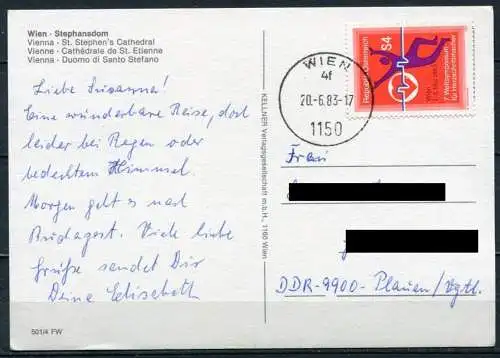 Wien · Stephansdom
Vienna · St. Stephen's Cathedral
Vienne · Cathédrale de St. Etienne
Vienna · Duomo di Santo Stefano
Liebe Susanna!
Eine wunderbare Reise, dort
leider bei Regen oder
bedecktem Himmel.
Morgen geht es nach
Budapest. Viele liebe
Grüße sendet Dir
Deine Elisabeth
501/4 FW
KELLNER Verlagsgesellschaft m.b.H., 1160 Wien
WIEN
4f
20.-6.83-17
1150
Republik Österreich
S4
7. Weltsymposium
für Herzschrittmacher
Frau
DDR-9900-Plauen/Vgtl.